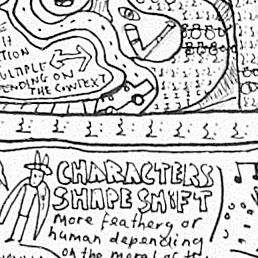 MULTIPLE
ENDING ON
THE CONTEXT
CHARACTERS
SHAPE SHIFT
more feathery or
human depending
on the moral of